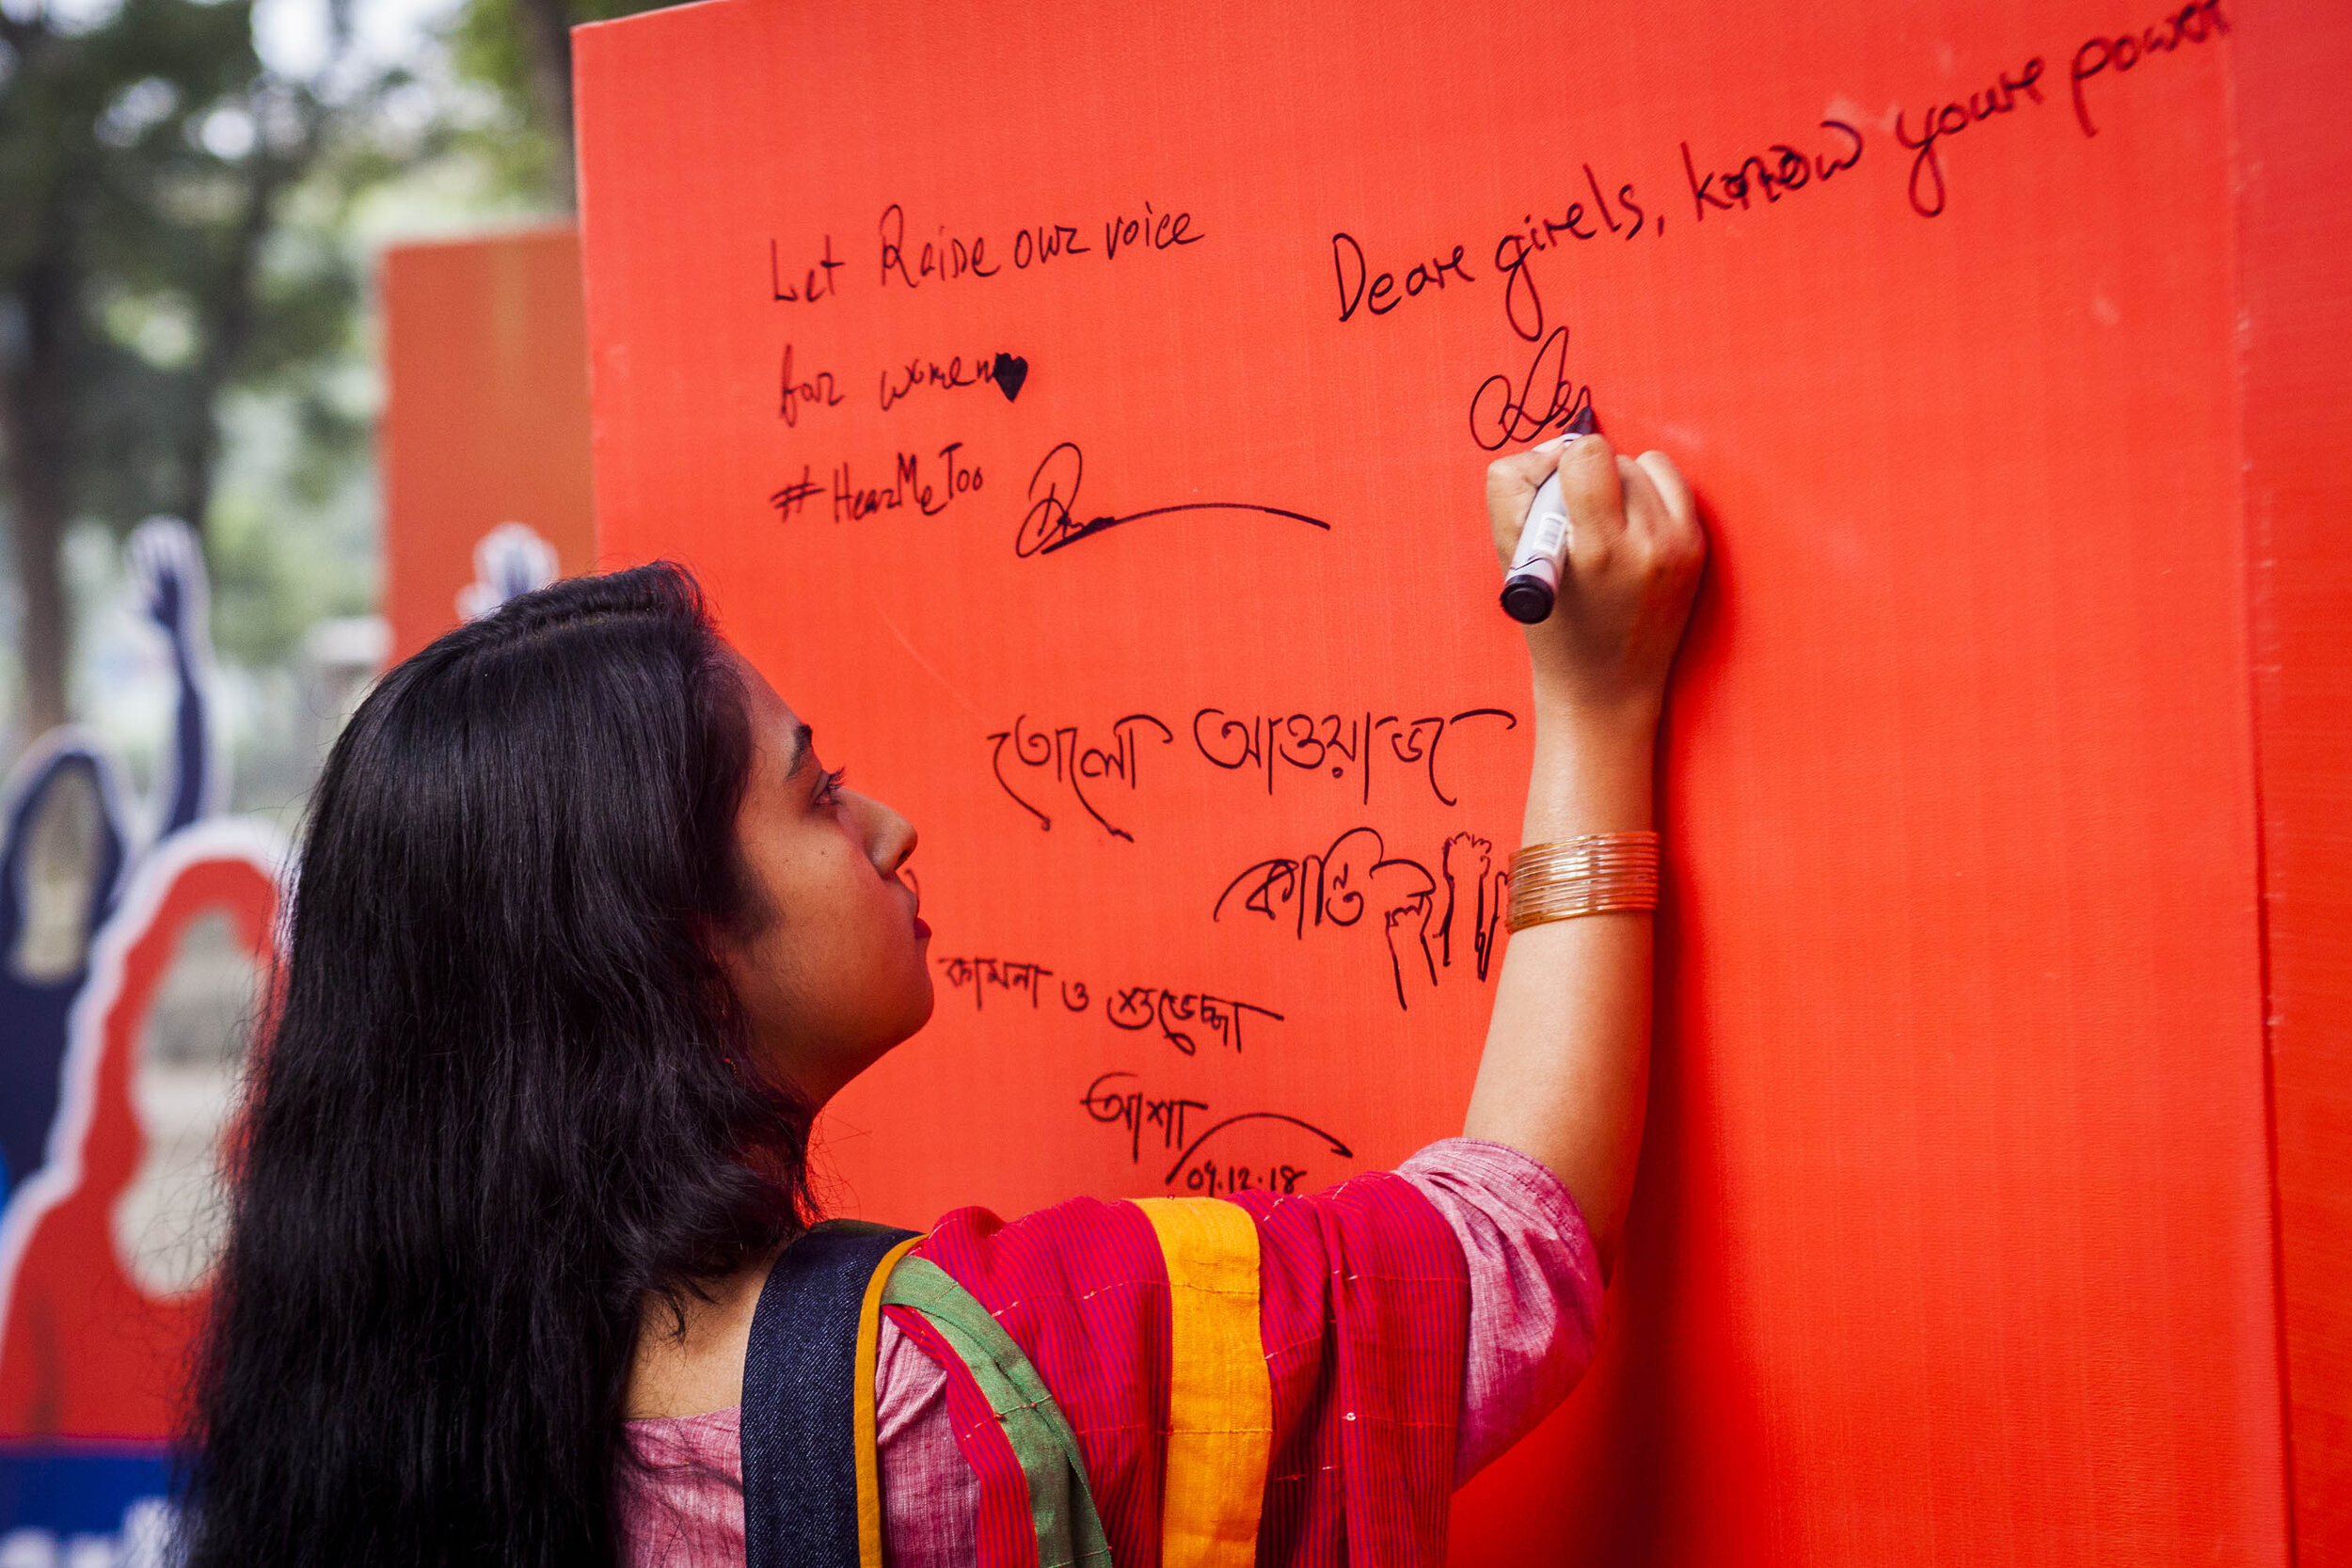 Let Raise our voice
for women
#HearMeToo
Dear girls, know your power
তোলো আওয়াজ
কামনা ও শুভেচ্ছা
আশা
09.12.18